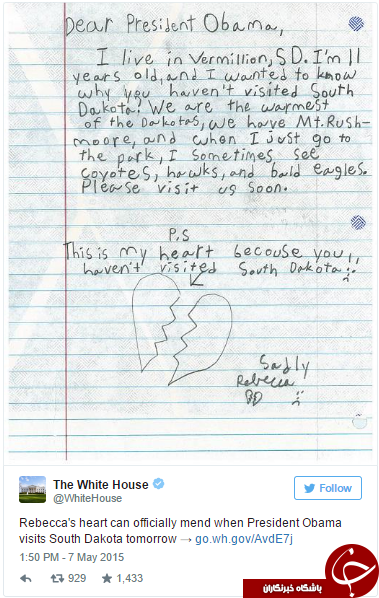 Dear President Obama,
I live in Vermillion, SD. I'm 11
years old, and I wanted to know
why you haven't visited South
Dakota! We are the warmest
of the Dakotas, we have Mt. Rush-
moore, and when I just go to
the park, I sometimes see
coyotes, hawks, and bald eagles.
Please visit us soon.
P.S
This is my heart becouse you
haven't visited South Dakota
Sadly
Rebecca
The White House
@WhiteHouse
Follow
Rebecca's heart can officially mend when President Obama
visits South Dakota tomorrow → go.wh.gov/AvdE7j
1:50 PM - 7 May 2015
929 1,433
باشگاه خبرنگاران